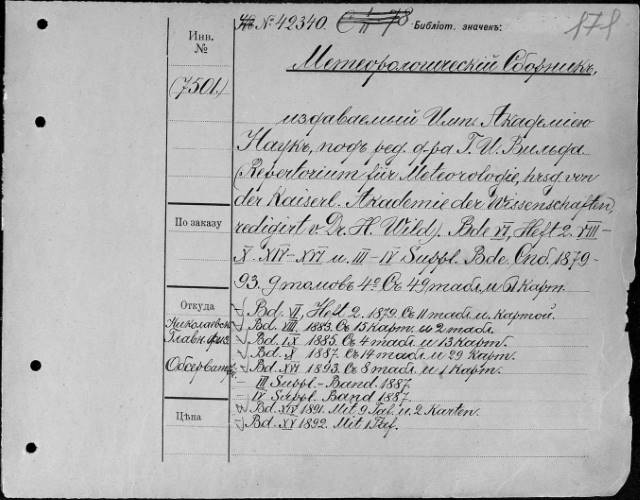 № 42340. Библіот. значекъ: 171
Инв.
№
(7501)
Метеорологическій Сборникъ,
издаваемый Имп. Академіею
Наукъ, подъ ред. д-ра Г. И. Вильда
(Repertorium für Meteorologie, hrsg. von
der Kaiserl. Akademie der Wissenschaften,
redigirt v. Dr. H. Wild). Bde VI, Heft 2. VIII-
По заказу
X. XIV-XVI u. III-IV Suppl. Bde. Спб. 1879-
93. 9 томовъ 4° Съ 49 табл. и карт.
Откуда
Николаевск.
Главн. Физ.
Обсерват.
Bd. VI, Heft 2. 1879. Съ 11 табл. и картой.
Bd. VIII. 1883. Съ 15 карт. и 2 табл.
Bd. IX 1885. Съ 4 табл. и 13 карт.
Bd. X 1887. Съ 14 табл. и 29 карт.
Bd. XVI 1893. Съ 8 табл. и 1 карт.
III Suppl.-Band. 1887.
IV Suppl. Band 1887.
Цѣна
Bd. XIV 1891. Mit 9 Taf. u. 2 Karten.
Bd. XV 1892. Mit 1 Taf.